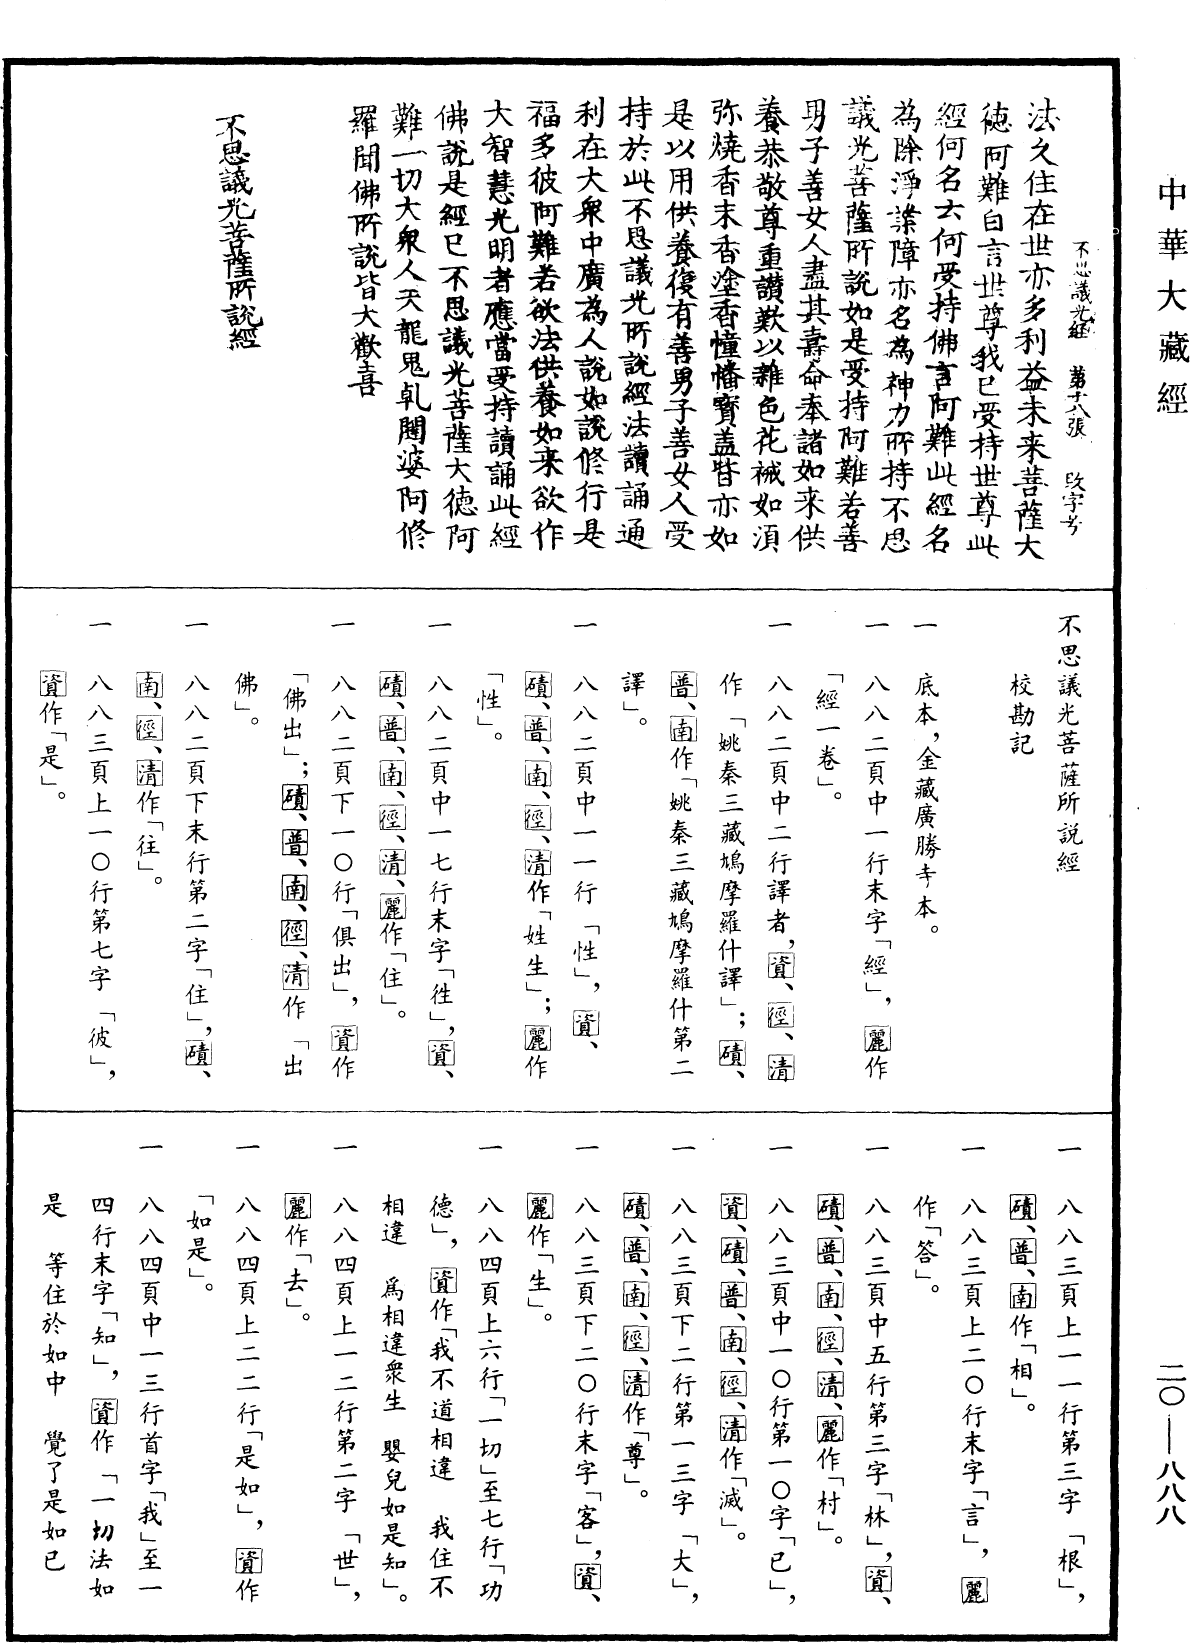 中華大藏經
不思議光經　第十八張　改字号
法久住在世亦多利益未来菩薩大
德阿難白言世尊我已受持世尊此
經何名云何受持佛言阿難此經名
為除淨業障亦名為神力所持不思
議光菩薩所說如是受持阿難若善
男子善女人盡其壽命奉諸如来供
養恭敬尊重讃歎以雜色花裓如須
弥燒香末香塗香幢幡寶盖皆亦如
是以用供養復有善男子善女人受
持於此不思議光所說經法讀誦通
利在大衆中廣為人說如說修行是
福多彼阿難若欲法供養如来欲作
大智慧光明者應當受持讀誦此經
佛說是經已不思議光菩薩大德阿
難一切大衆人天龍鬼乹闥婆阿修
羅聞佛所說皆大歡喜
不思議光菩薩所說經
不思議光菩薩所說經
校勘記
一　底本，金藏廣勝寺本。
一　八八二頁中一行末字「經」，麗作
「經一卷」。
一　八八二頁中二行譯者，資、徑、清
作「姚秦三藏鳩摩羅什譯」；磧、
普、南作「姚秦三藏鳩摩羅什第二
譯」。
一　八八二頁中一一行「性」，資、
磧、普、南、徑、清作「姓生」；麗作
「性」。
一　八八二頁中一七行末字「徃」，資、
磧、普、南、徑、清、麗作「住」。
一　八八二頁下一〇行「俱出」，資作
「佛出」；磧、普、南、徑、清作「出
佛」。
一　八八二頁下末行第二字「住」，磧、
南、徑、清作「往」。
一　八八三頁上一〇行第七字「彼」，
資作「是」。
一　八八三頁上一一行第三字「根」，
磧、普、南作「相」。
一　八八三頁上二〇行末字「言」，麗
作「答」。
一　八八三頁中五行第三字「林」，資、
磧、普、南、徑、清、麗作「村」。
一　八八三頁中一〇行第一〇字「已」，
資、磧、普、南、徑、清作「滅」。
一　八八三頁下二行第一三字「大」，
磧、普、南、徑、清作「尊」。
一　八八三頁下二〇行末字「客」，資、
麗作「生」。
一　八八四頁上六行「一切」至七行「功
德」，資作「我不道相違　我住不
相違　爲相違衆生　嬰兒如是知」。
一　八八四頁上一二行第二字「世」，
麗作「去」。
一　八八四頁上二二行「是如」，資作
「如是」。
一　八八四頁中一三行首字「我」至一
四行末字「知」，資作「一切法如
是　等住於如中　覺了是如已
二〇——八八八